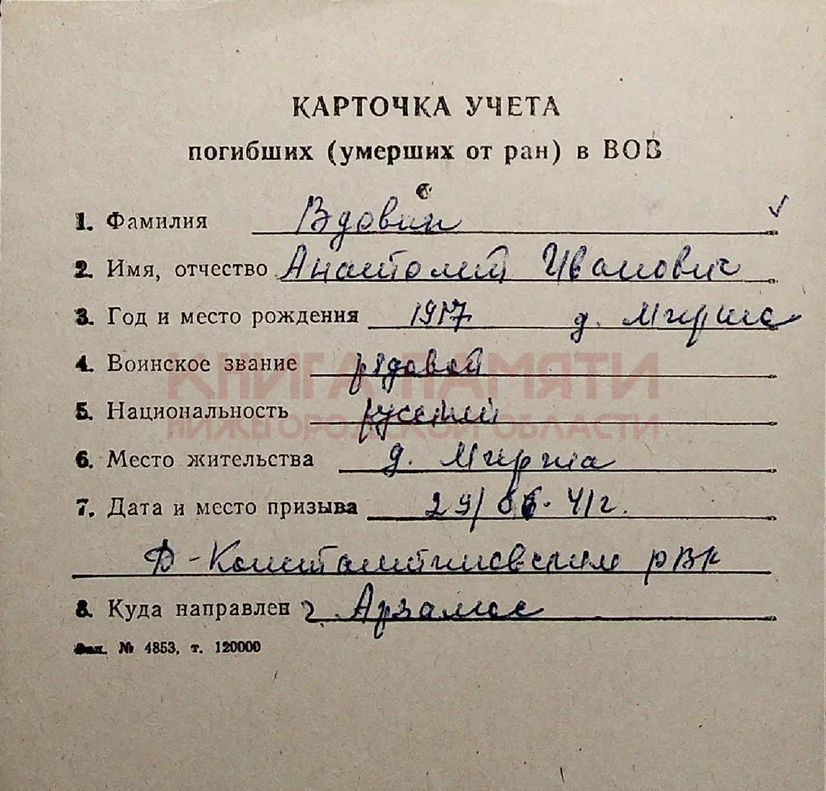 КАРТОЧКА УЧЕТА
погибших (умерших от ран) в ВОВ
1. Фамилия Вдовин
2. Имя, отчество Анатолий Иванович
3. Год и место рождения 1917 д. Мигриша
4. Воинское звание рядовой
КНИГА ПАМЯТИ
5. Национальность русский
НИЖЕГОРОДСКОЙ ОБЛАСТИ
6. Место жительства д.
7. Дата и место призыва 29/06-41г.
Д-Константиновским РВК
8. Куда направлен г. Арзамас
Зак. № 4853, т. 120000